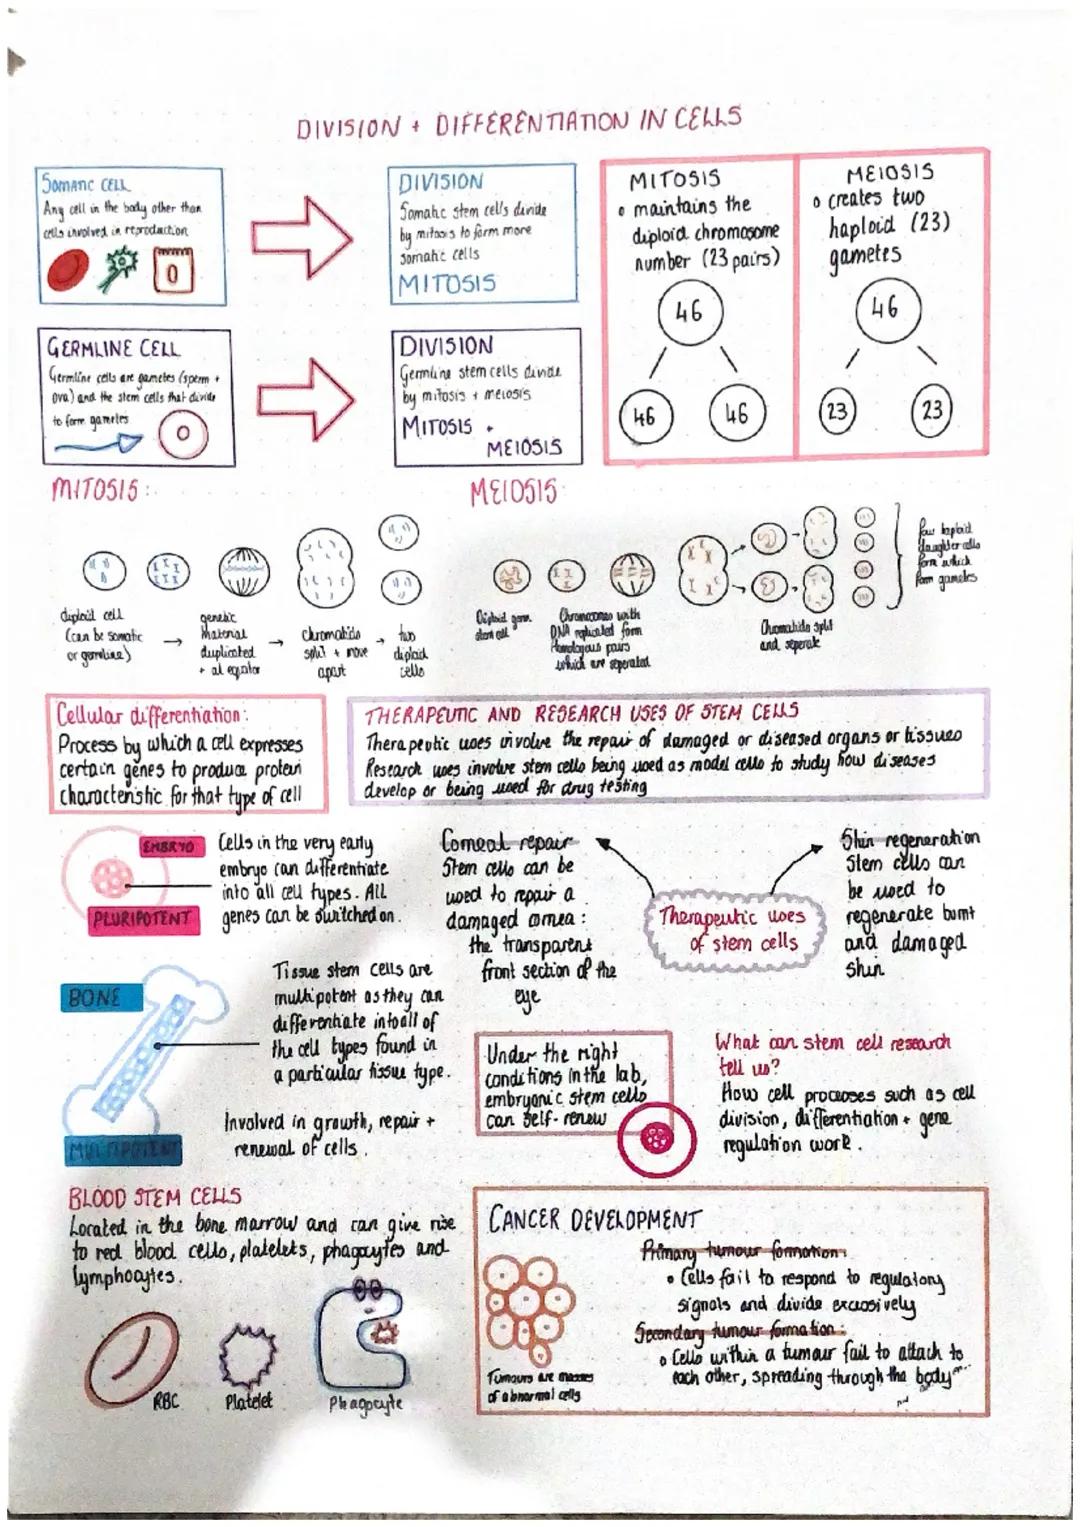 DIVISION + DIFFERENTIATION IN CELLS
SOMATIC CELL
Any cell in the body other than
cells involved in reproduction
0
DIVISION
Somatic stem cells divide
by mitosis to form more
somatic cells
MITOSIS
MITOSIS
• maintains the
diploid chromosome
number (23 pairs)
46
46
46
MEIOSIS
• creates two
haploid (23)
gametes
46
23
23
GERMLINE CELL
Germline cells are gametes (sperm +
ova) and the stem cells that divide
to form gametes
DIVISION
Germline stem cells divide
by mitosis + meiosis
MITOSIS +
MEIOSIS
MITOSIS:
diploid cell
(can be somatic
or germline)
→
genetic
material
duplicated
+ at equator
→
chromatids
split + move
apart
→
two
diploid
cells
MEIOSIS
Diploid germ
stem cell
Chromosomes with
DNA replicated form
Homologous pairs
which are seperated
Chromatids split
and seperate
four haploid
daughter cells
form which
form gametes
Cellular differentiation:
Process by which a cell expresses
certain genes to produce protein
characteristic for that type of cell
THERAPEUTIC AND RESEARCH USES OF STEM CELLS
Therapeutic uses involve the repair of damaged or diseased organs or tissues
Research uses involve stem cells being used as model cells to study how diseases
develop or being used for drug testing
EMBRYO
PLURIPOTENT
Cells in the very early
embryo can differentiate
into all cell types. All
genes can be switched on.
Corneal repair
Stem cells can be
used to repair a
damaged cornea:
the transparent
front section of the
eye
Therapeutic uses
of stem cells
Skin regeneration
Stem cells can
be used to
regenerate burnt
and damaged
skin
BONE
MULTIPOTENT
Tissue stem cells are
multipotent as they can
differentiate into all of
the cell types found in
a particular tissue type.
Involved in growth, repair +
renewal of cells.
Under the right
conditions in the lab,
embryonic stem cells
can self-renew
What can stem cell research
tell us?
How cell processes such as cell
division, differentiation + gene
regulation work.
BLOOD STEM CELLS
Located in the bone marrow and can give rise
to red blood cells, platelets, phagocytes and
lymphocytes.
RBC
Platelet
Phagocyte
CANCER DEVELOPMENT
Tumours are masses
of abnormal cells
Primary tumour formation:
• Cells fail to respond to regulatory
signals and divide excessively
Secondary tumour formation:
• Cells within a tumour fail to attach to
each other, spreading through the body